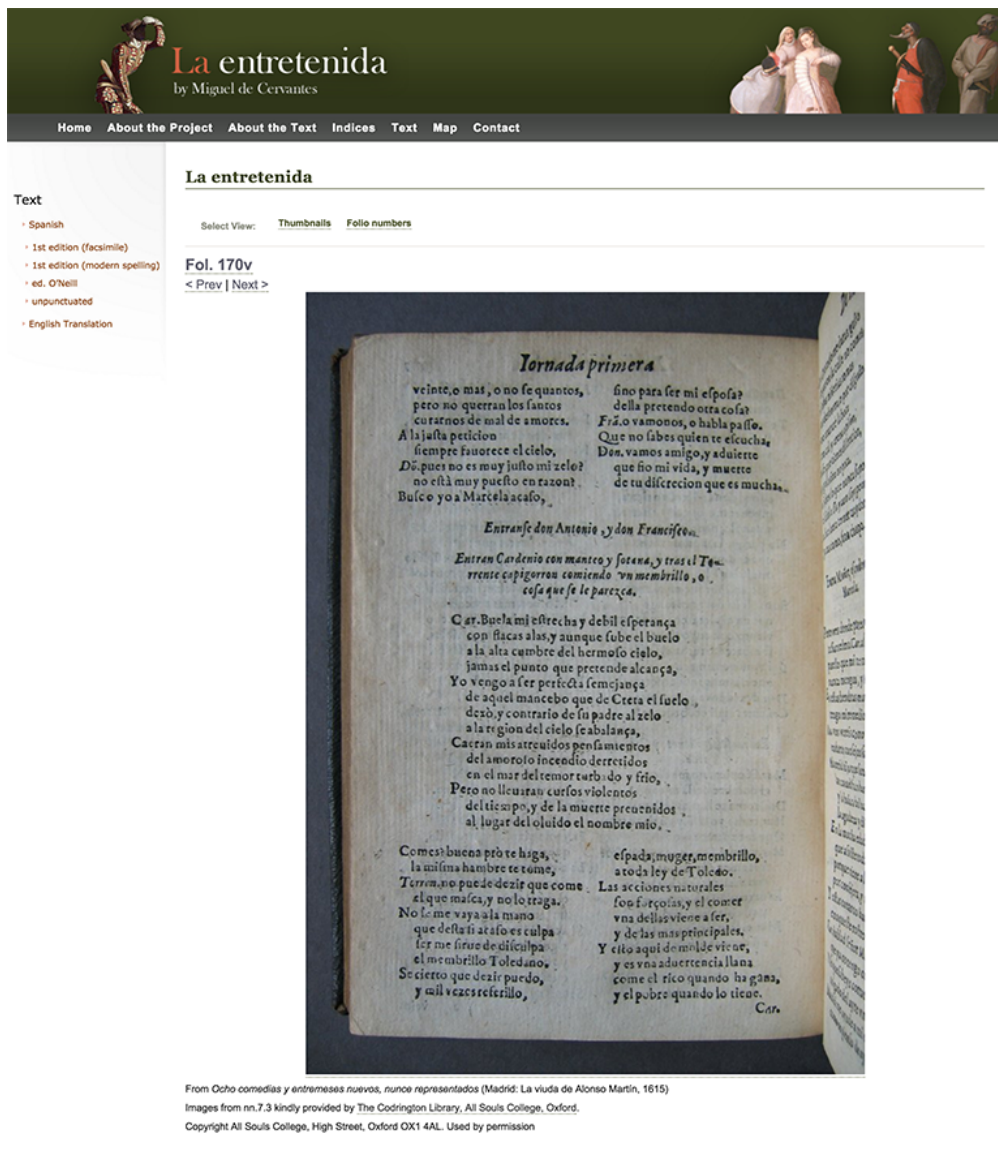 La entretenida
by Miguel de Cervantes
Home About the Project About the Text Indices Text Map Contact
Text
Spanish
1st edition (facsimile)
1st edition (modern spelling)
ed. O'Neill
unpunctuated
English Translation
La entretenida
Select View: Thumbnails Folio numbers
Fol. 170v
< Prev | Next >
Iornada primera
veinte, o mas, o no se quantos,
pero no querran los santos
curarnos de mal de amores.
A la justa peticion
siempre fauorece el cielo,
Dō. pues no es muy justo mi zelo?
no està muy puesto en razon?
Busco yo a Marcela acaso,
sino para ser mi esposa?
della pretendo otra cosa?
Frā. o vamonos, o habla passo.
Que no sabes quien te escucha,
Don. vamos amigo, y aduierte
que fio mi vida, y muerte
de tu discrecion que es mucha.
Entranse don Antonio, y don Francisco.
Entran Cardenio con manteo y sotana, y tras el To-
rrente capigorron comiendo vn membrillo, o
cosa que se le parezca.
Car. Buela mi estrecha y debil esperança
con flacas alas, y aunque sube el buelo
a la alta cumbre del hermoso cielo,
jamas el punto que pretende alcança,
Yo vengo a ser perfecta semejança
de aquel mancebo que de Creta el suelo
dexò, y contrario de su padre al zelo
a la region del cielo se abalança,
Caeran mis atreuidos pensamientos
del amoroso incendio derretidos
en el mar del temor turbado y frio,
Pero no lleuaran cursos violentos
del tiempo, y de la muerte preuenidos
al lugar del oluido el nombre mio.
Comes? buena prò te haga,
la misma hambre te tome,
Torren. no puede dezir que come
el que masca, y no lo traga.
No se me vaya a la mano
que desta ti acaso es culpa
ser me sirue de disculpa
el membrillo Toledano,
Se cierto que dezir puedo,
y mil vezes referillo,
espada, muger, membrillo,
a toda ley de Toledo.
Las acciones naturales
son forçosas, y el comer
vna dellas viene a ser,
y de las mas principales.
Y esto aqui de molde viene,
y es vna aduertencia llana
come el rico quando ha gana,
y el pobre quando lo tiene.
Car.
From Ocho comedias y entremeses nuevos, nunce representados (Madrid: La viuda de Alonso Martín, 1615)
Images from nn.7.3 kindly provided by The Codrington Library, All Souls College, Oxford.
Copyright All Souls College, High Street, Oxford OX1 4AL. Used by permission